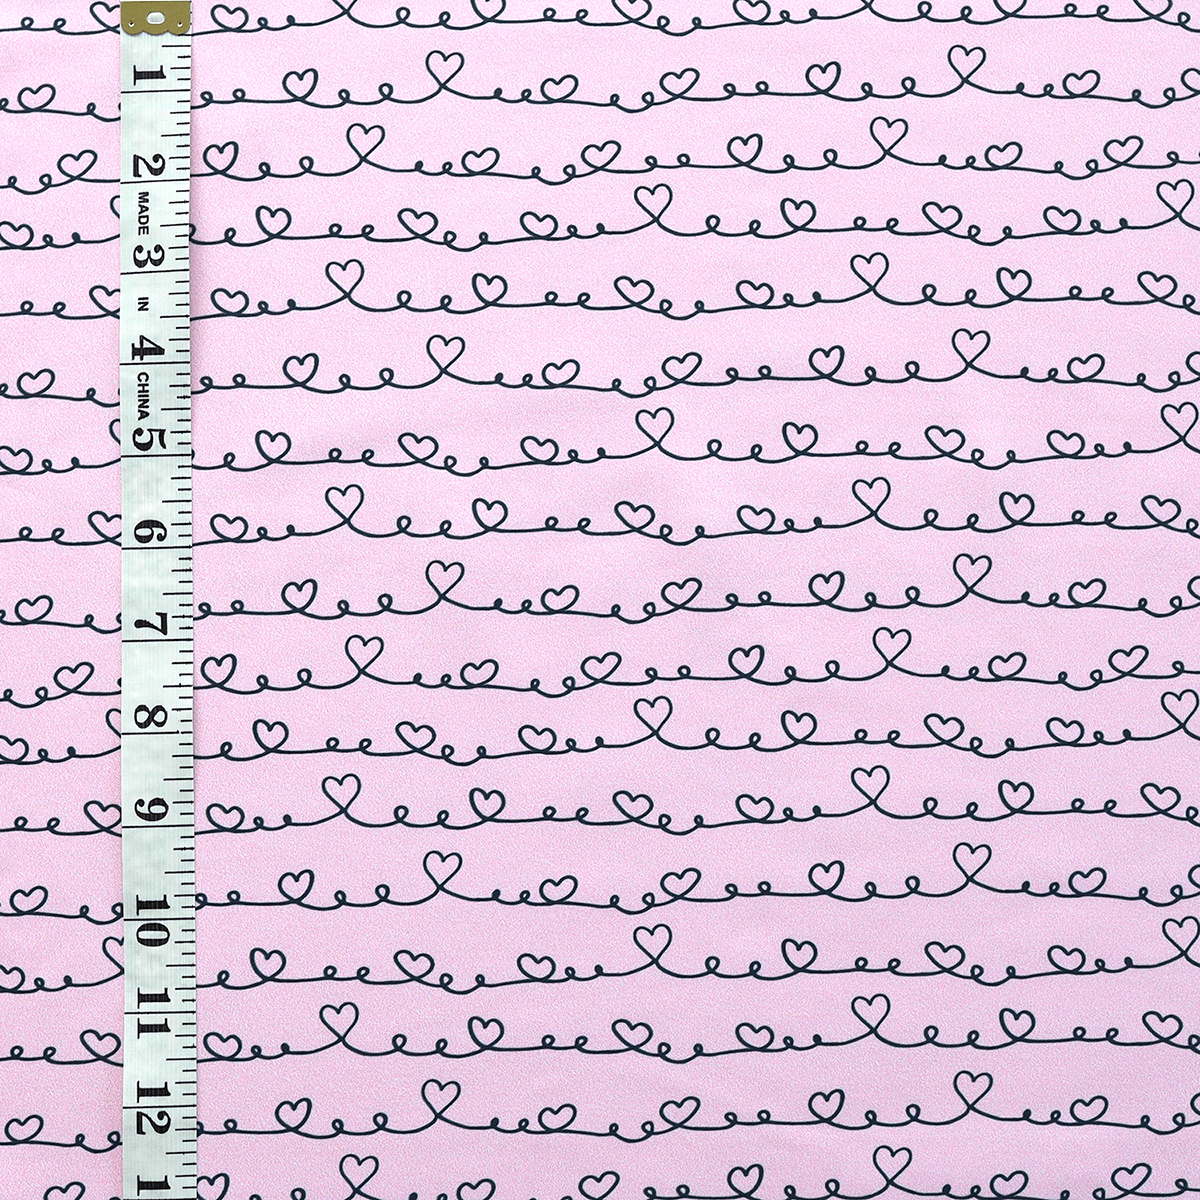 1
2
MADE
3
IN
4
CHINA
5
6
7
8
9
10
11
12
1